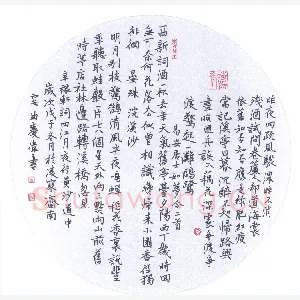 昨夜雨疏風驟濃睡不消
殘酒試問卷簾人卻道海棠
依舊知否知否應是綠肥紅瘦
常記溪亭日暮沉醉不知歸路興
盡晚回舟誤入藕花深處爭渡爭
渡驚起一灘鷗鷺
易安居士如夢令二首
一曲新詞酒一杯去年天氣舊亭臺夕陽西下幾時回
無可奈何花落去似曾相識燕歸來小園香徑獨
徘徊 晏殊 浣溪沙
明月別枝驚鵲清風半夜鳴蟬稻花香裏說豐
年聽取蛙聲一片七八個星天外兩三點雨山前舊
時茅店社林邊路轉溪橋忽見
辛稼軒詞西江月夜行黃沙道中
歲次戊子冬月於凌寒齋南